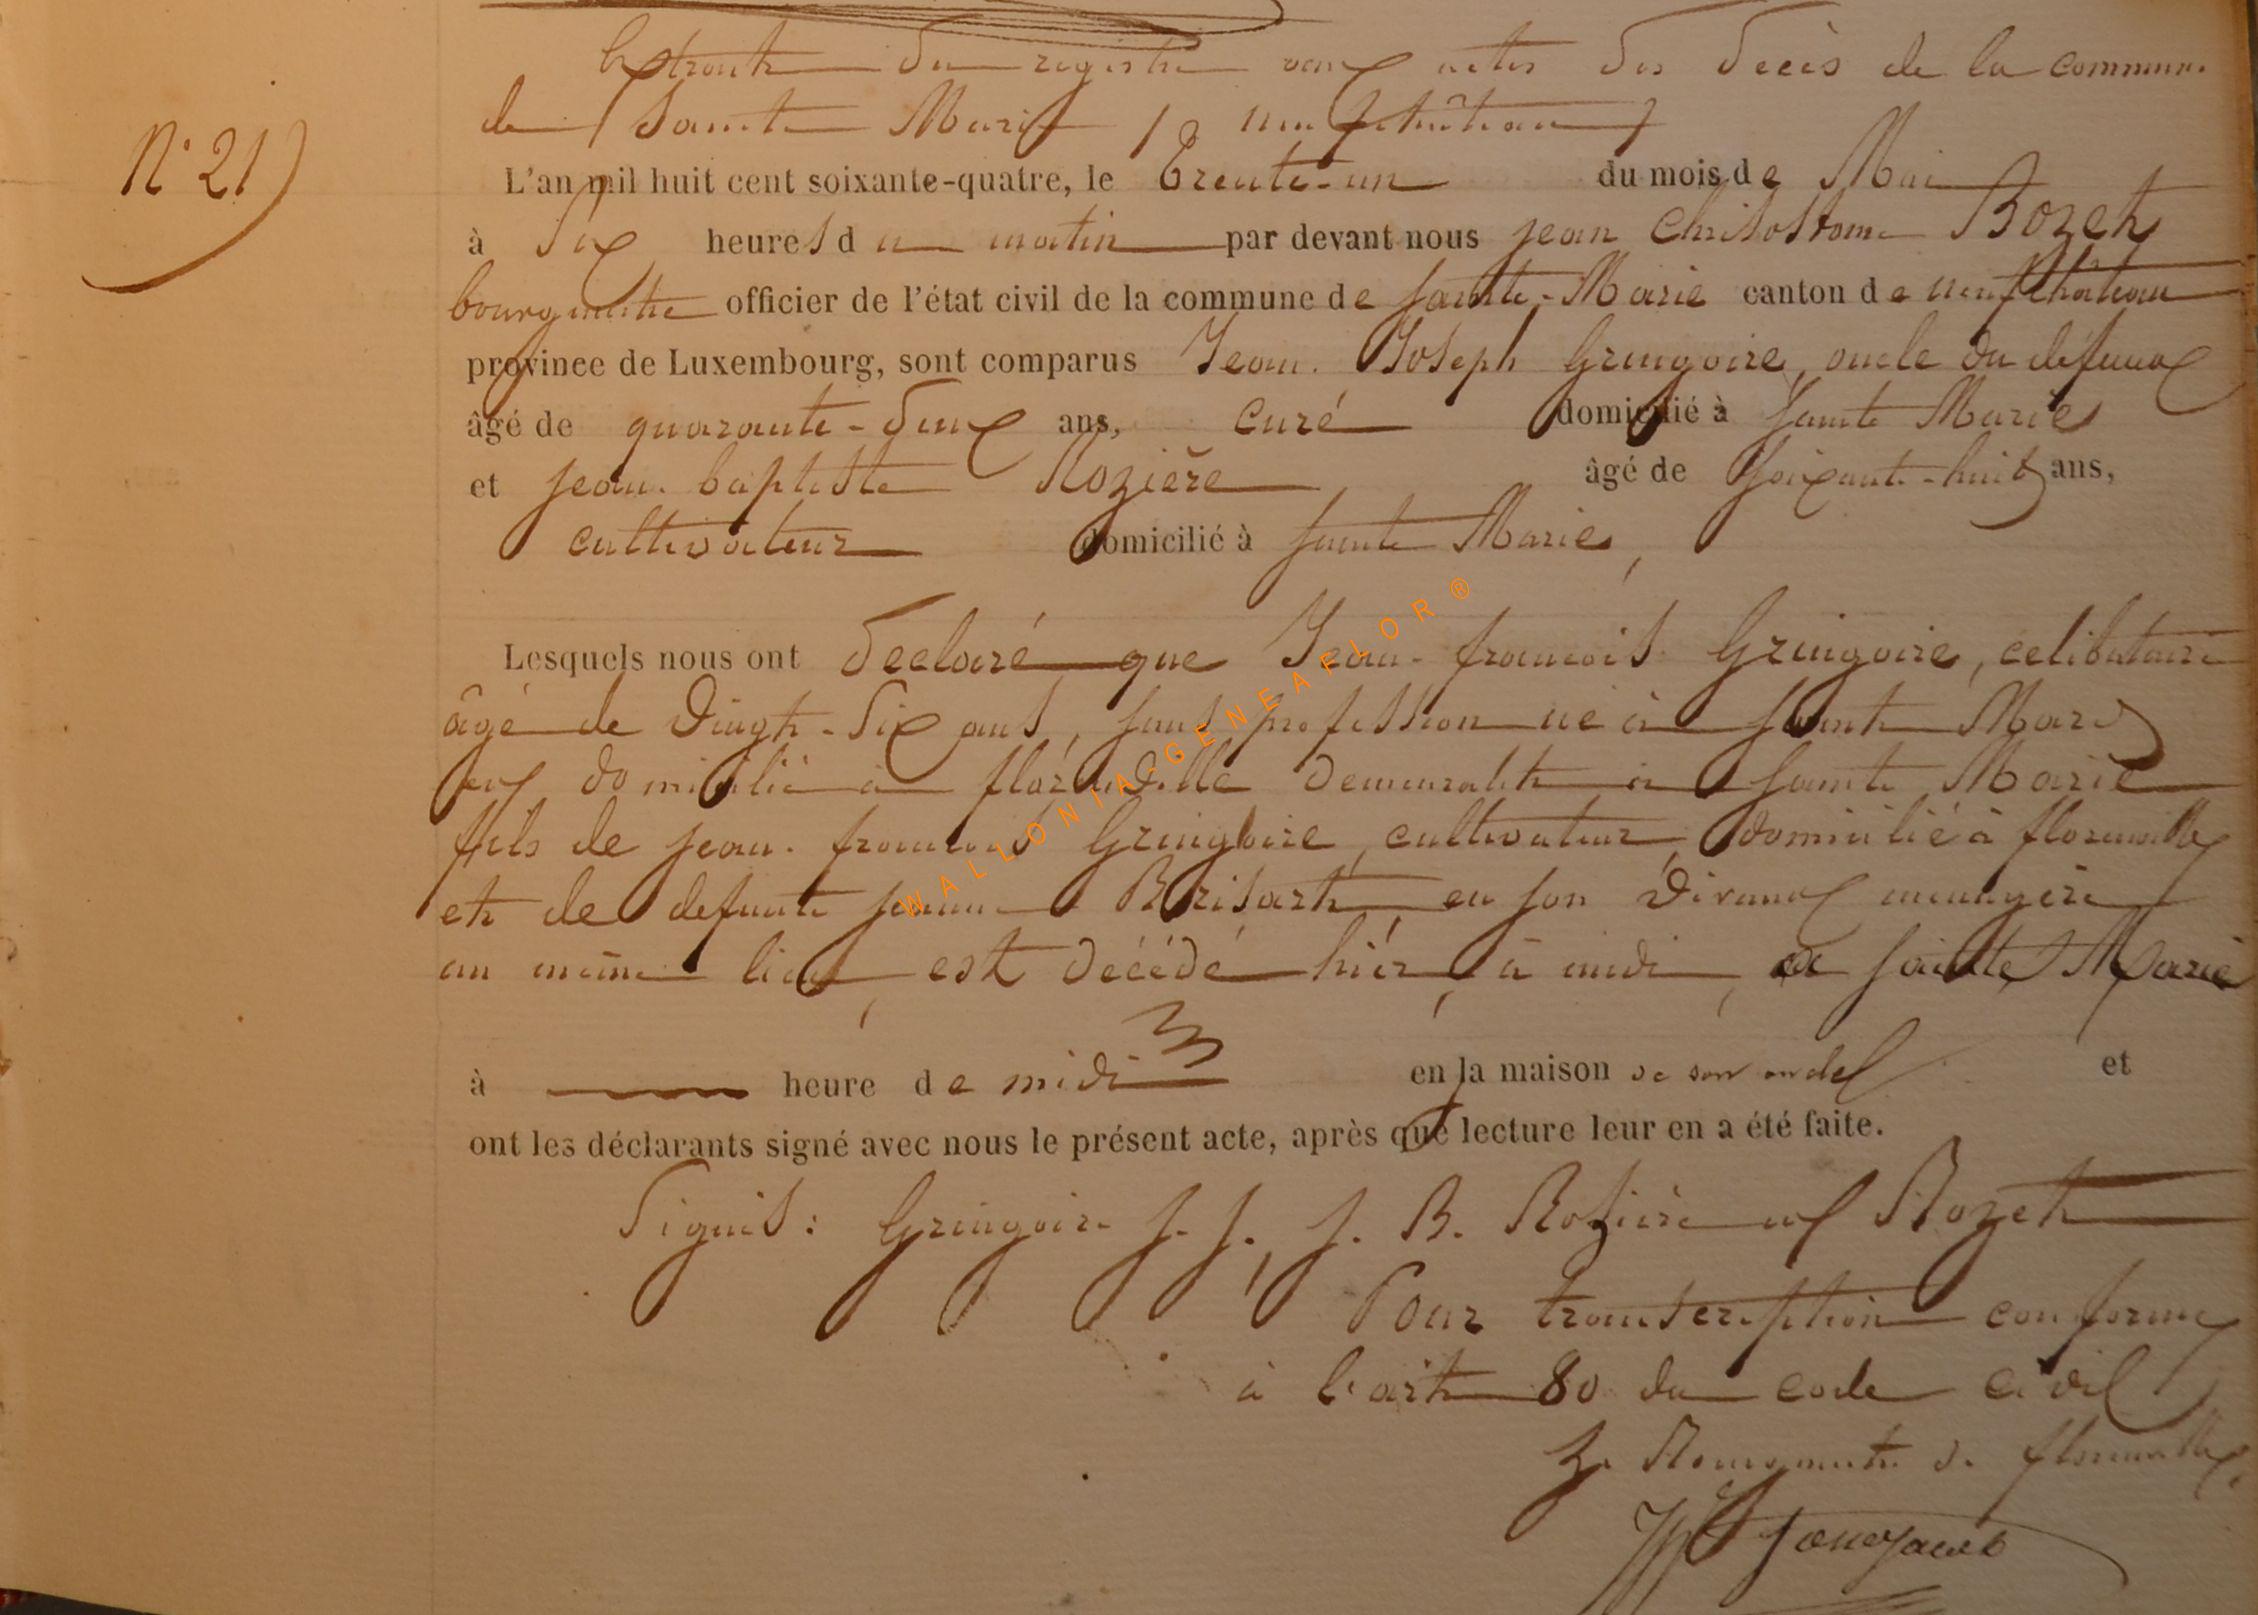 Extrait du registre aux actes des décès de la commune
de Sainte Marie, (Neufchâteau)
N° 21)
L'an mil huit cent soixante-quatre, le Trente-un du mois de Mai
à Six heures du matin par devant nous jean Chrisostome Bozet
bourgmestre officier de l'état civil de la commune de Sainte-Marie canton de neufchâteau
province de Luxembourg, sont comparus Jean Joseph Gringoire, oncle du défunt
âgé de quarante-deux ans, curé domicilié à Sainte Marie
et jean baptiste Rozière âgé de Soixante-huit ans,
cultivateur domicilié à Sainte Marie,
Lesquels nous ont declaré que Jean françois Gringoire, celibataire
âgé de Vingt-Six ans, sans profession né à Sainte Marie
et domicilié à florenville demeurant à Sainte Marie
fils de jean françois Gringoire, cultivateur, domicilié à florenville
et de defunte jeanne Brisart, en son vivant menagère
au même lieu, est décédé hier, à midi, à Sainte Marie
à heure de midi en la maison de son oncle et
ont les déclarants signé avec nous le présent acte, après que lecture leur en a été faite.
Signés: Gringoire J. J., J. B. Rosière et Bozet
Pour transcription conforme
à l'art 80 du code civil
Le Bourgmestre de florenville,
WALLONIA-GENEAFLOR ®